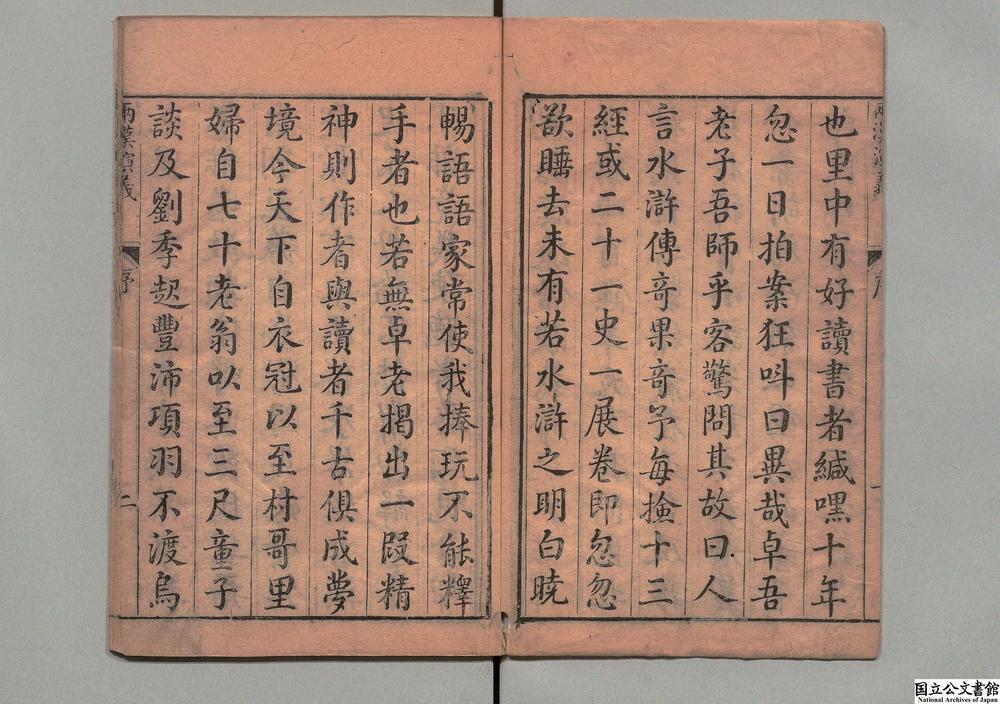 也里中有好讀書者緘嘿十年
忽一日拍案狂叫曰異哉卓吾
老子吾師乎客驚問其故曰人
言水滸傳奇果奇予每撿十三
經或二十一史一展卷即忽忽
欲睡去未有若水滸之明白曉
暢語語家常使我捧玩不能釋
手者也若無卓老揭出一段精
神則作者與讀者千古俱成夢
境今天下自衣冠以至村哥里
婦自七十老翁以至三尺童子
談及劉季起豐沛項羽不渡烏
兩漢演義
序
二
国立公文書館
National Archives of Japan